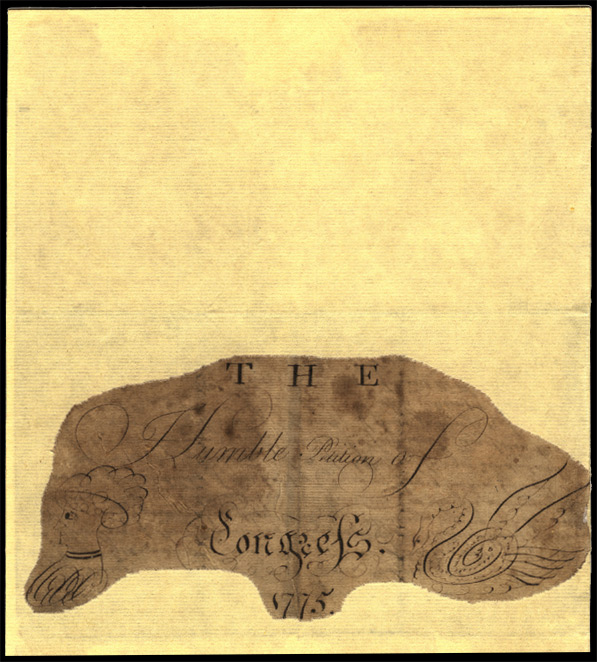 THE
Humble Petition of
Congreſs.
1775.